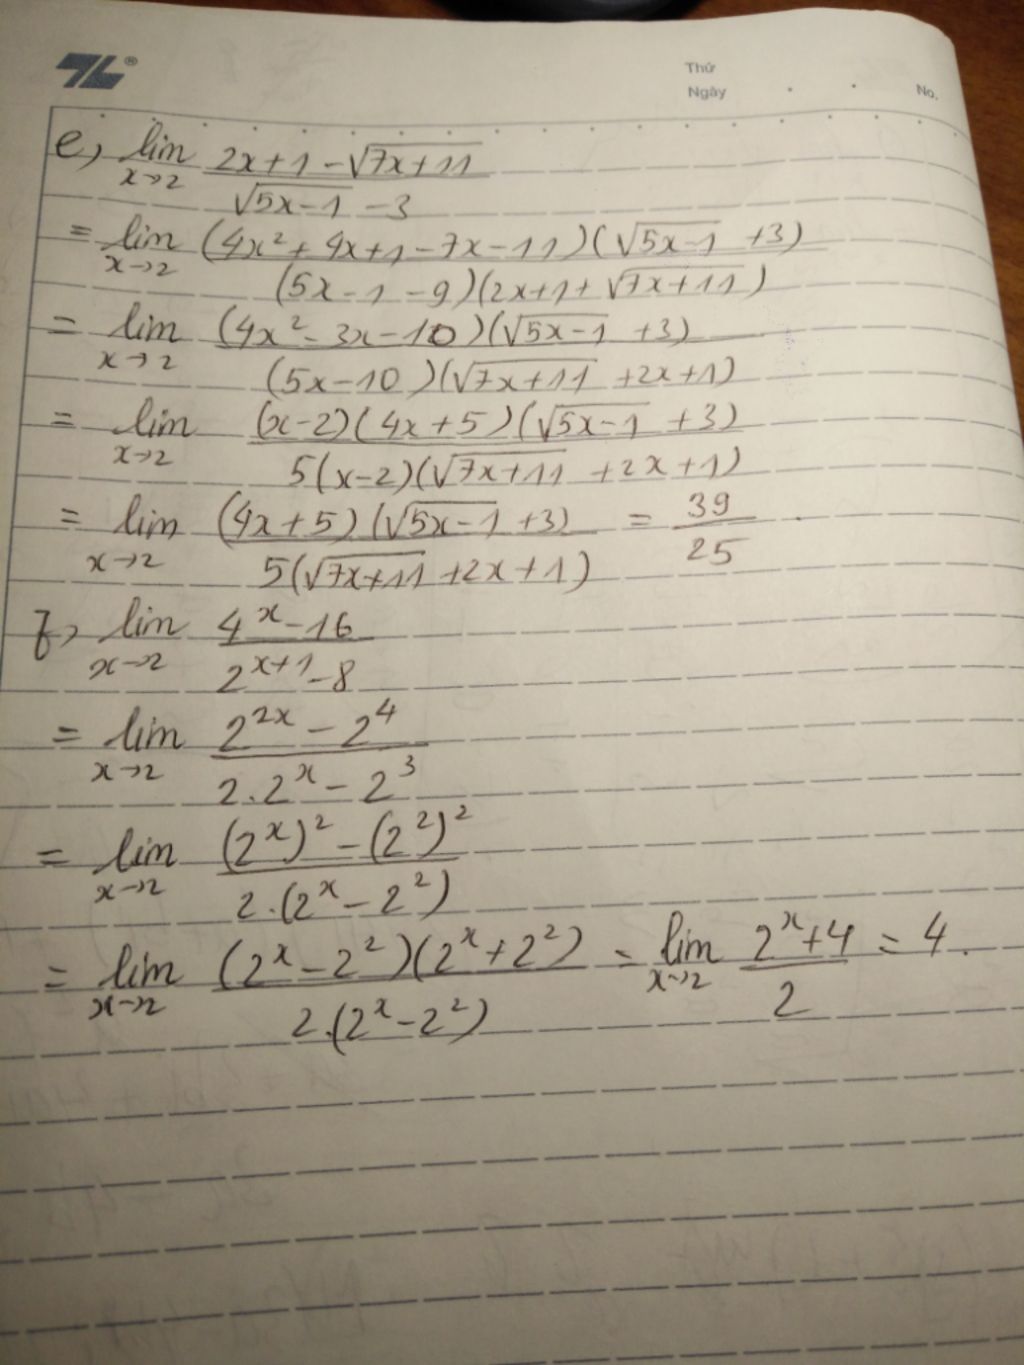 TL®
Thứ
Ngày
No.
e, lim_{x→2} (2x+1-√(7x+11))/(√(5x-1) -3)
= lim_{x→2} ((4x²+4x+1-7x-11)(√(5x-1) +3))/((5x-1-9)(2x+1+√(7x+11)))
= lim_{x→2} ((4x²-3x-10)(√(5x-1) +3))/((5x-10)(√(7x+11) +2x+1))
= lim_{x→2} ((x-2)(4x+5)(√(5x-1) +3))/(5(x-2)(√(7x+11) +2x+1))
= lim_{x→2} ((4x+5)(√(5x-1)+3))/(5(√(7x+11)+2x+1)) = 39/25.
f, lim_{x→2} (4^x-16)/(2^{x+1}-8)
= lim_{x→2} (2^{2x}-2^4)/(2.2^x-2^3)
= lim_{x→2} ((2^x)²-(2²)²)/(2.(2^x-2²))
= lim_{x→2} ((2^x-2²)(2^x+2²))/(2.(2^x-2²)) = lim_{x→2} (2^x+4)/2 = 4.